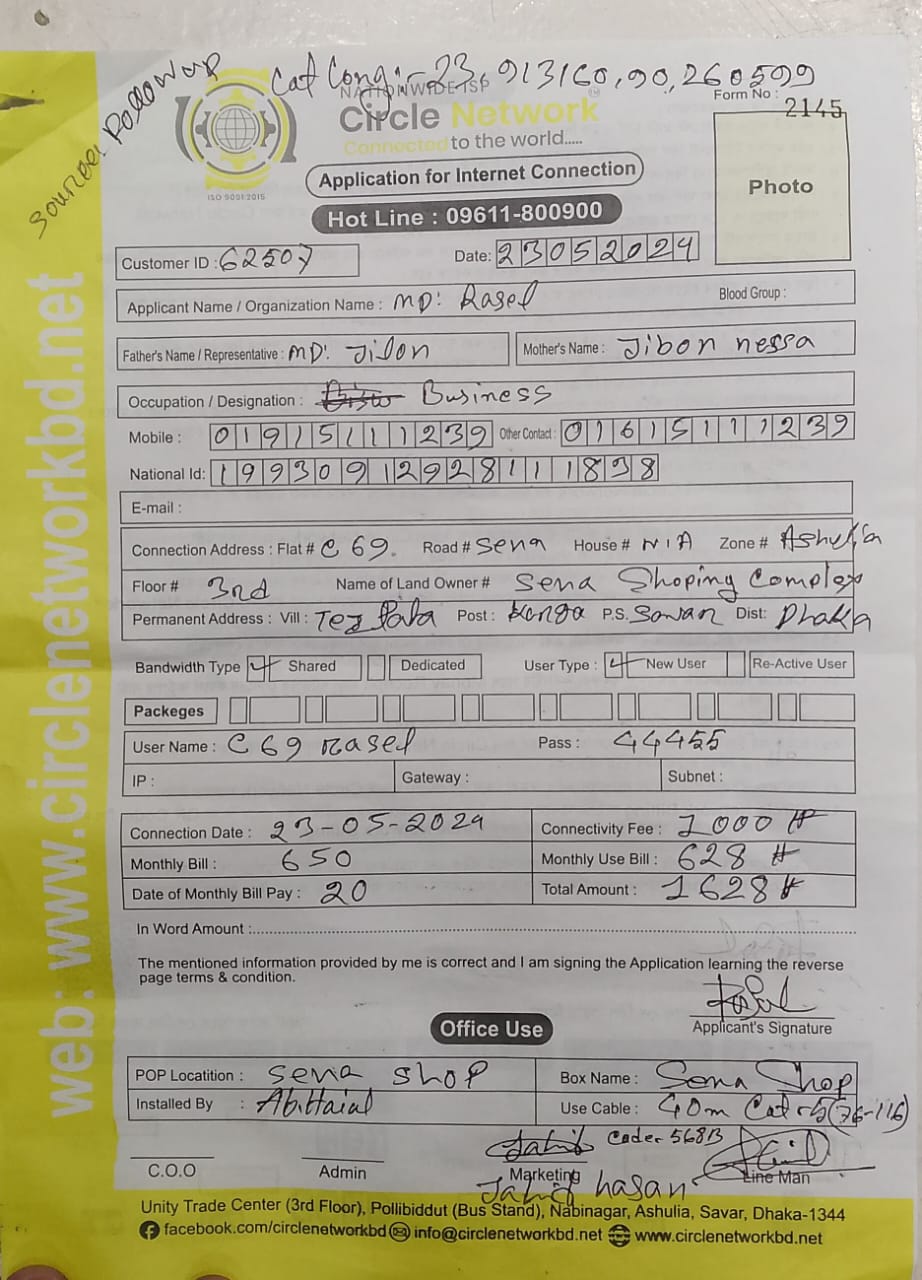 Source: Followup
Cat Long:- 23.913160,90.260599
NATIONWIDE ISP
Form No : 2145
Circle Network
Connected to the world.....
ISO 9001:2015
Application for Internet Connection
Photo
Hot Line : 09611-800900
Customer ID : 62507 Date: 23052024
Applicant Name / Organization Name : MD: Rasel Blood Group :
Father's Name / Representative : MD: Jilon Mother's Name : Jibon nessa
Occupation / Designation : Business
Mobile : 01915111239 Other Contact : 01615111239
National Id: 19930912928111838
E-mail :
Connection Address : Flat # C 69. Road # Sena House # N/A Zone # Ashulia
Floor # 3rd Name of Land Owner # Sena Shoping Complex
Permanent Address : Vill : Post : P.S. Savar Dist: Dhaka
Bandwidth Type Shared Dedicated User Type : New User Re-Active User
Packeges
User Name : C 69 rasel Pass : 44455
IP : Gateway : Subnet :
Connection Date : 23-05-2024 Connectivity Fee : 1000
Monthly Bill : 650 Monthly Use Bill : 628
Date of Monthly Bill Pay : 20 Total Amount : 1628
In Word Amount :
The mentioned information provided by me is correct and I am signing the Application learning the reverse
page terms & condition.
Applicant's Signature
Office Use
POP Locatition : Sena Shop Box Name : Sena Shop
Installed By : Use Cable : 40m Cat-5(76-116)
Coder 568B
C.O.O Admin Marketing Line Man
Jahid hasan
Unity Trade Center (3rd Floor), Pollibiddut (Bus Stand), Nabinagar, Ashulia, Savar, Dhaka-1344
facebook.com/circlenetworkbd info@circlenetworkbd.net www.circlenetworkbd.net
web: www.circlenetworkbd.net